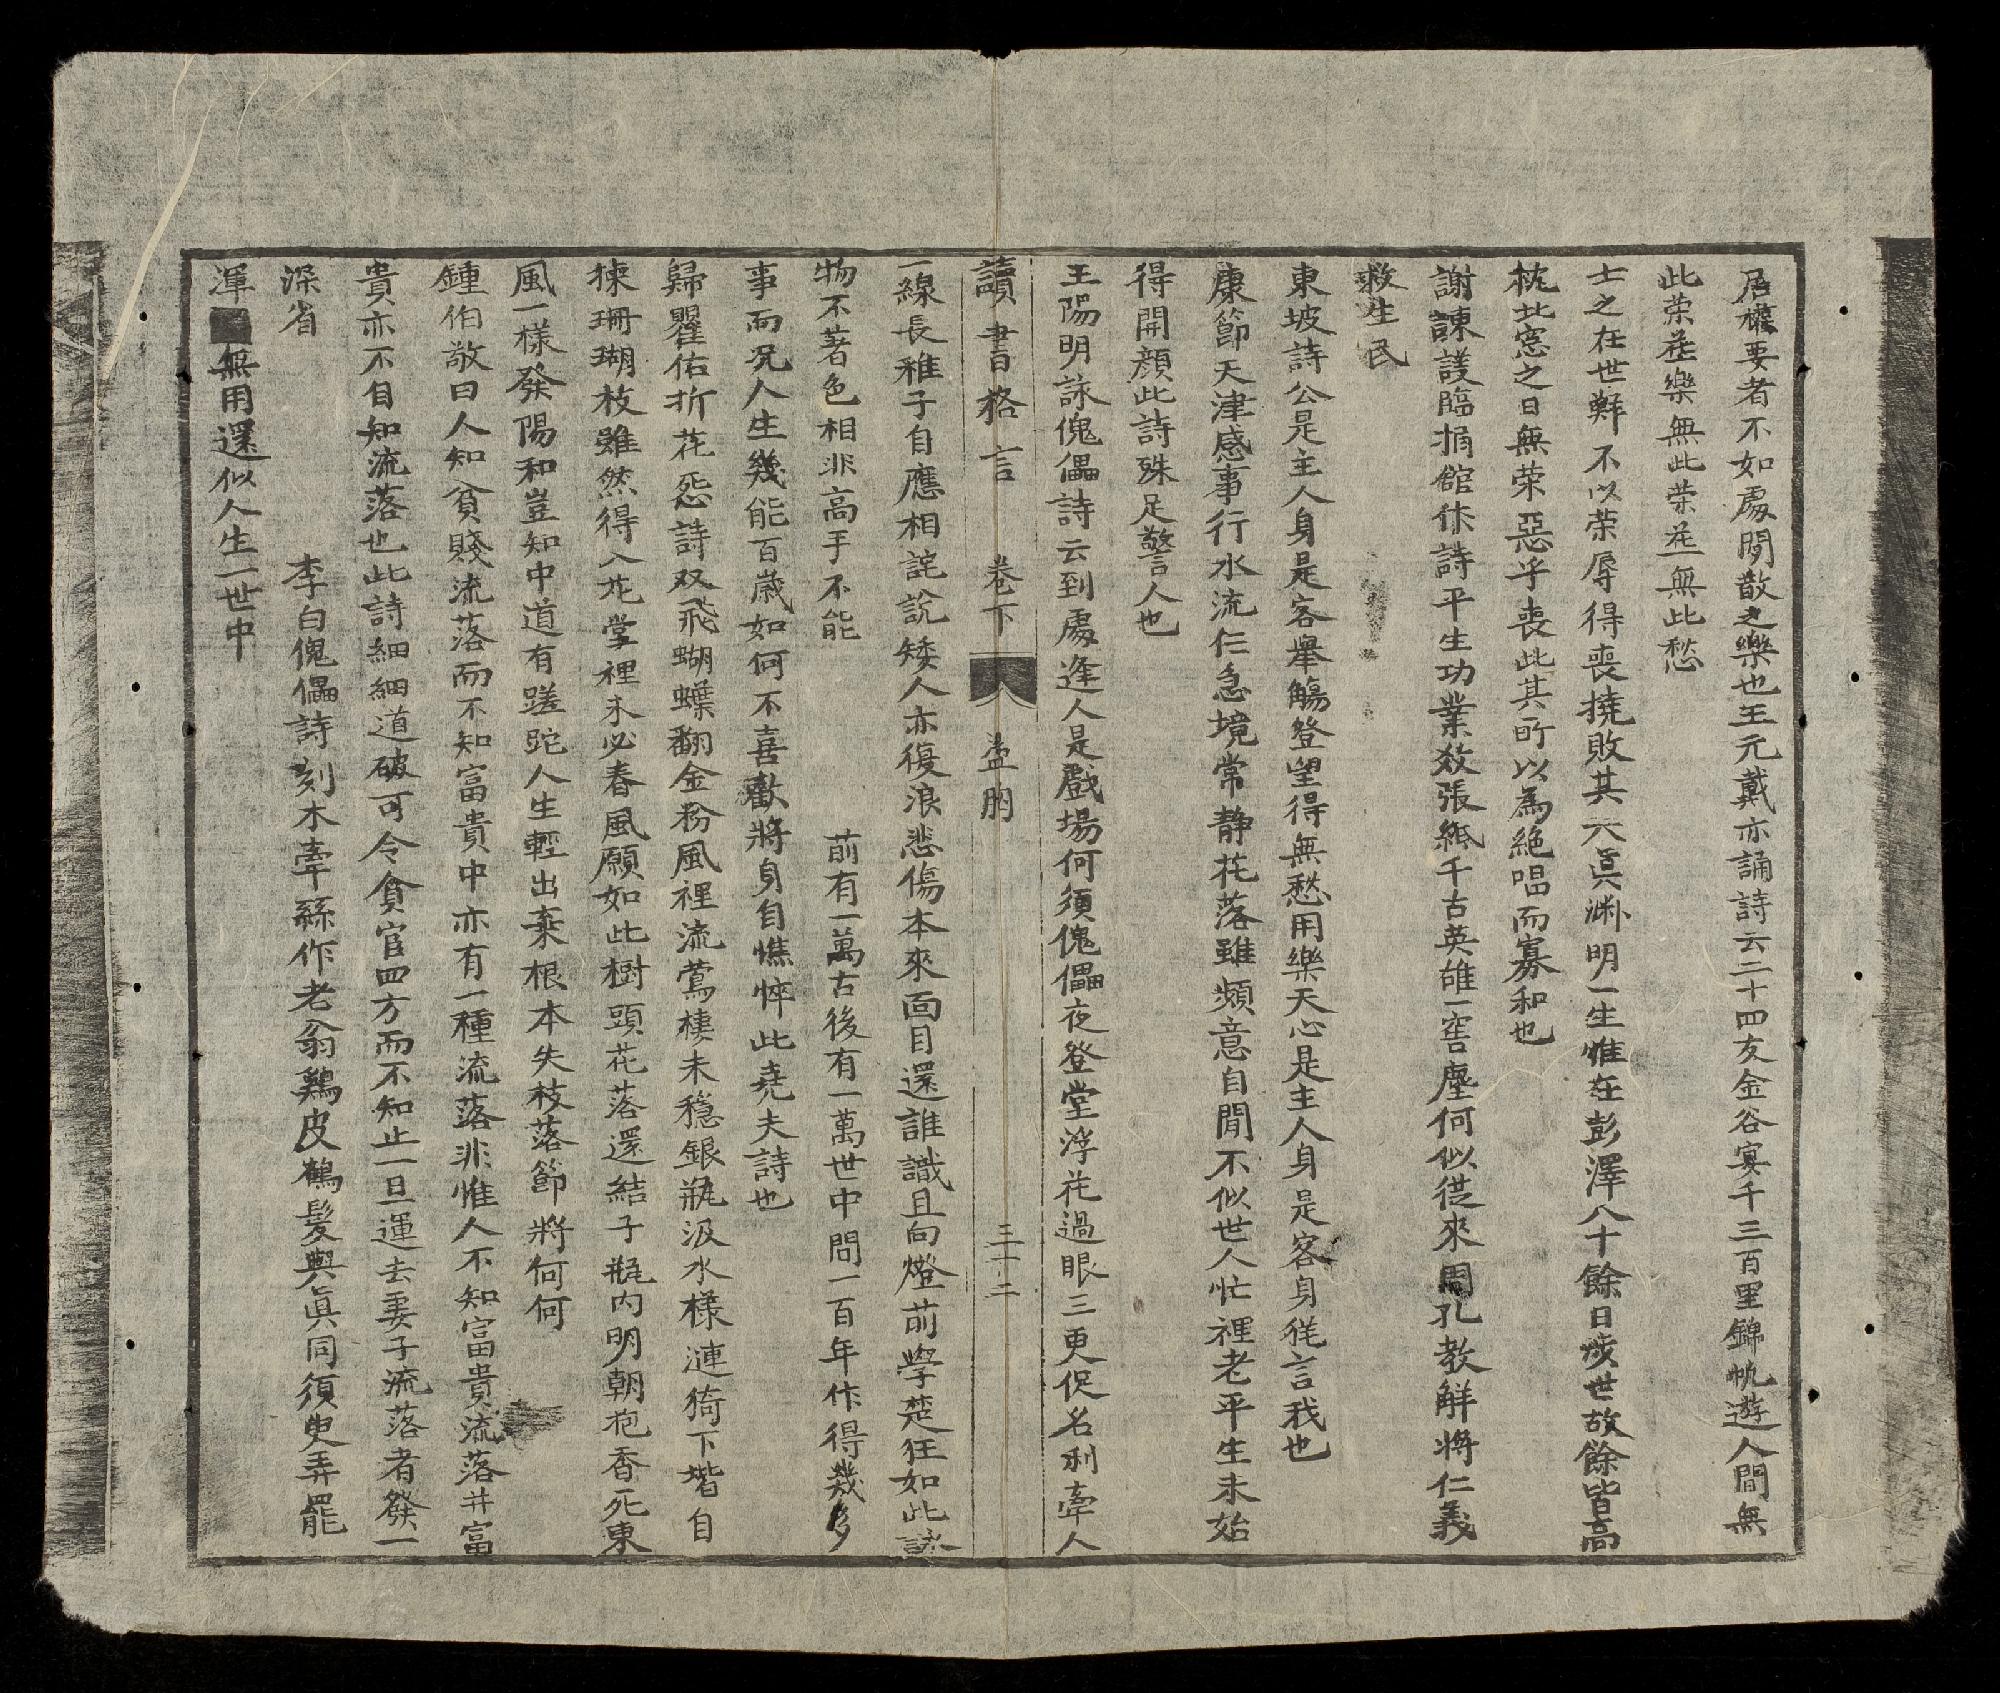 居權要者不如處閒散之樂也王元戴亦誦詩云二十四友金谷宴千三百里錦帆遊人間無
此荣在樂無此荣在無此愁
士之在世鮮不以荣辱得喪撓敗其大眞渊明一生惟在彭澤八十餘日涉世故餘皆高
枕北窓之日無荣惡乎喪此其所以為絶唱而寡和也
謝諫議臨捐館作詩平生功業效張紙千古英雄一窖塵何似從來周孔教解將仁義
救生民
東坡詩公是主人身是客舉觴登望得無愁用樂天心是主人身是客身後言我也
康節天津感事行水流仁急境常静花落雖頻意自閒不似世人忙裡老平生未始
得開顏此詩殊足警言人也
王陽明詠傀儡詩云到處逢人是戲場何須傀儡夜登堂浮花過眼三更促名利牽人
讀書格言 卷下 盖朋 三十二
一線長稚子自應相詫說矮人亦復浪悲傷本來面目還誰識且向燈前學楚狂如此詠
物不著色相非高手不能 前有一萬古後有一萬世中問一百年作得幾多
事而况人生幾能百歲如何不喜歡將身自憔悴此堯夫詩也
歸瞿佑折花怨詩双飛蝴蝶翻金粉風裡流鶯棲未穏銀瓶汲水様漣猗下堦自
揀珊瑚枝雖然得入花堂裡未必春風願如此樹頭花落還結子瓶内明朝抱香死東
風一樣發陽和豈知中道有蹉跎人生輕出棄根本失枝落節將何何
鍾伯敬曰人知貧賤流落而不知富貴中亦有一種流落非惟人不知富貴流落井富
貴亦不自知流落也此詩細細道破可令貪官四方而不知止一旦運去妻子流落者發一
深省 李白傀儡詩刻木牽絲作老翁鷄皮鶴髮與眞同須臾弄罷
渾無用還似人生一世中